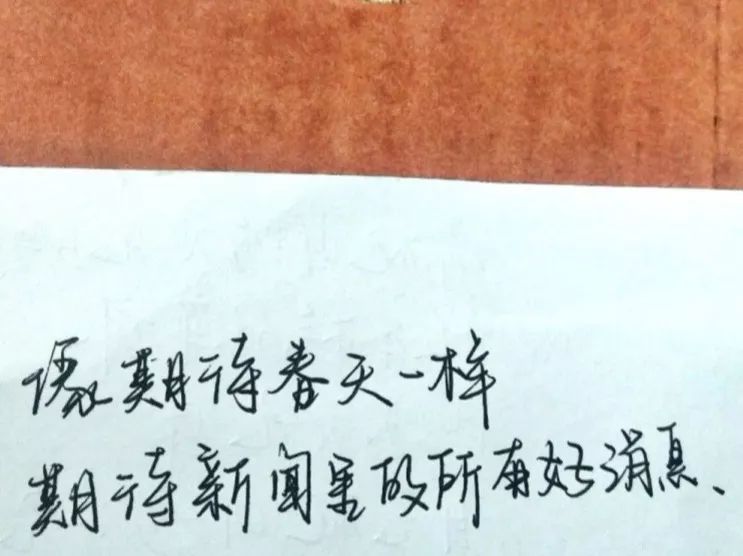 像期待春天一样
期待新闻里的所有好消息、